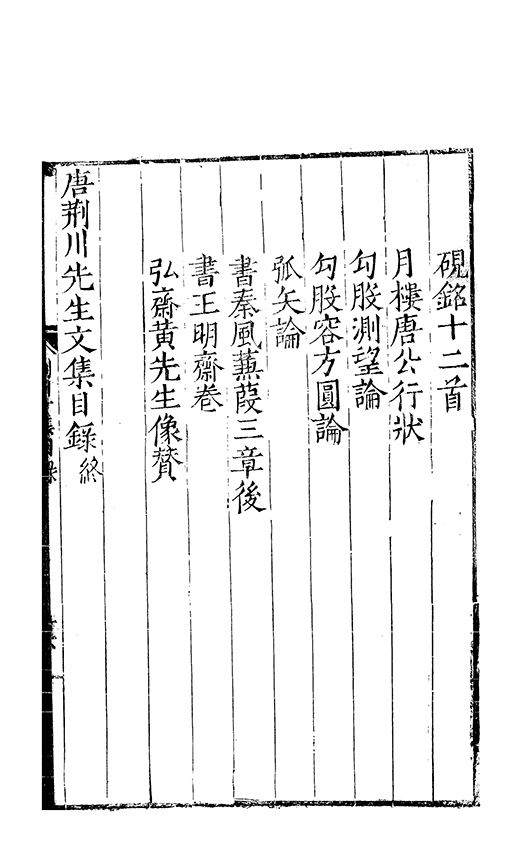 硯銘十二首
月樓唐公行狀
勾股測望論
勾股容方圓論
弧矢論
書秦風蒹葭三章後
書王明齋卷
弘齋黃先生像贊
唐荊川先生文集目錄終